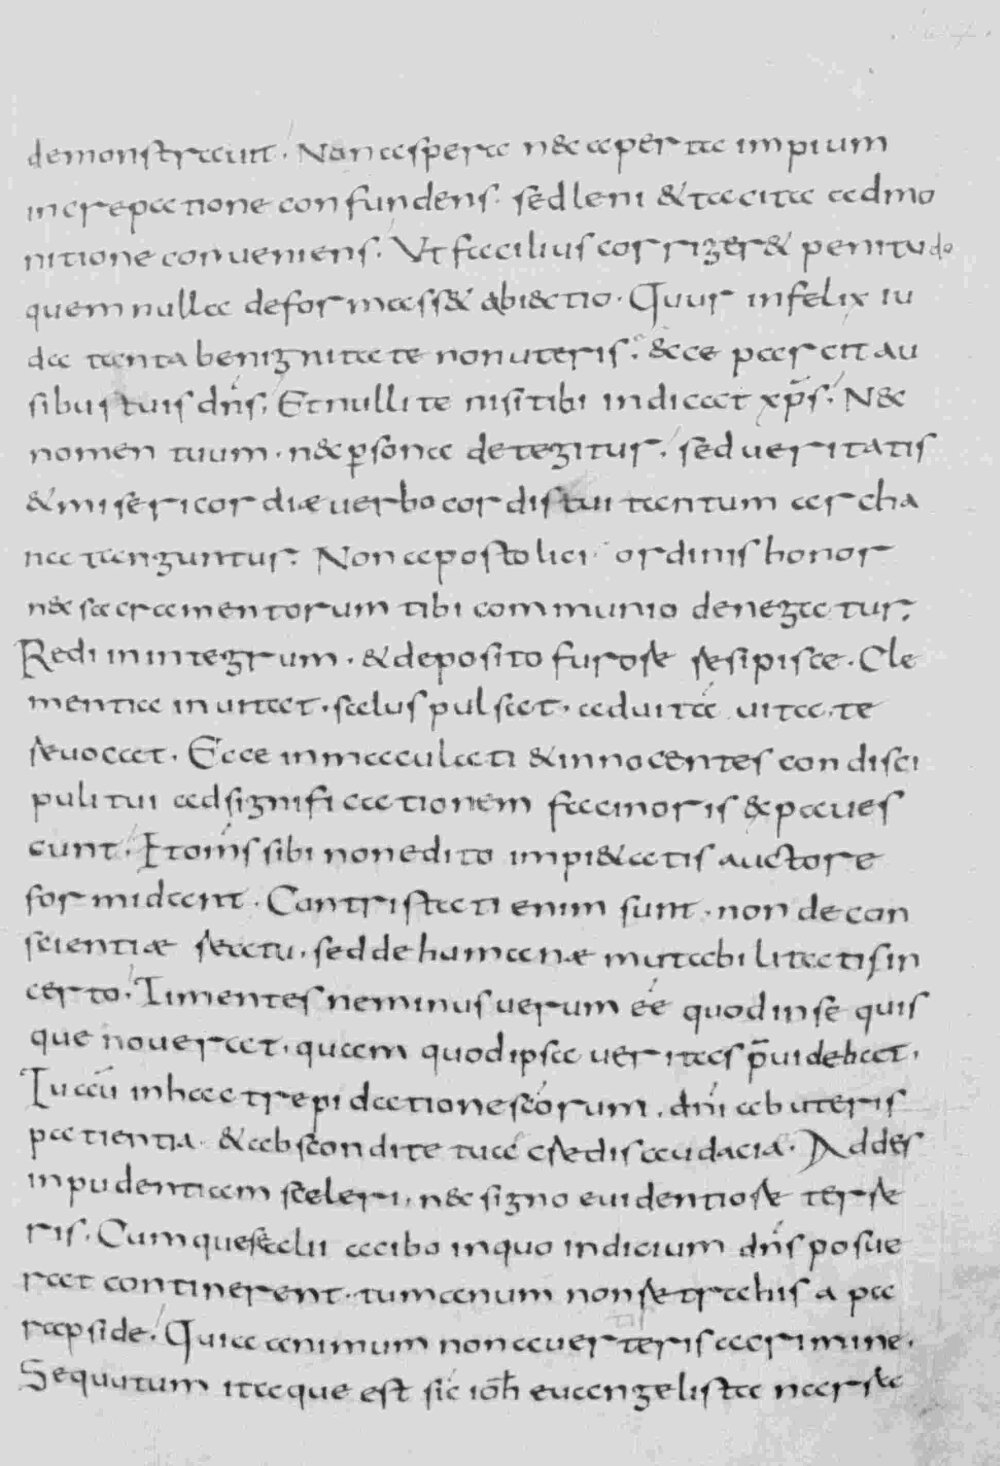 demonstrauit. Non aspera n& aperta impium
increpatione confundens. sed leni & tacita admo
nitione conueniens. Vt facilius corriger& penitudo
quem nulla deformass& abiectio. Quur infelix iu
da tanta benignitate non uteris. &ce parcit au
sibus tuis dn̄s. Et nulli te nisi tibi indicat xp̄s. N&
nomen tuum. n& p̱sona detegitur. sed ueritatis
& misericordiæ uerbo cordis tui tantum archa
na tanguntur. Non apostolici ordinis honor
n& sacramentorum tibi communio denegatur.
Redi in integrum. & deposito furore resipisce. Cle
mentia inuitat. salus pulsat. ad uitā uita te
reuocat. Ecce inmaculati & innocentes condisci
puli tui ad significationem facinoris & paues
cunt. Et om̄s sibi non edito impi&atis auctore
formidant. Contristati enim sunt. non de con
scientiæ reatu. sed de humanæ mutabilitatis in
certo. Timentes ne minus uerum eē quod in se quis
que nouerat. quam quod ipsa ueritas p̄uidebat.
Tu aū in hac trepidatione sc̄orum. dn̄i ab uteris
patientia. & abscondi te tua credis audacia. Addes
inpudentiam sceleri. n& signo euidentiore terre
ris. Cumque se alii a cibo in quo indicium dn̄s posue
rat continerent. tu manum non retrahis a pa
rapside. Quia animum non auerteris a crimine.
Sequutum itaque est sic ioh̄ euangelista narrat